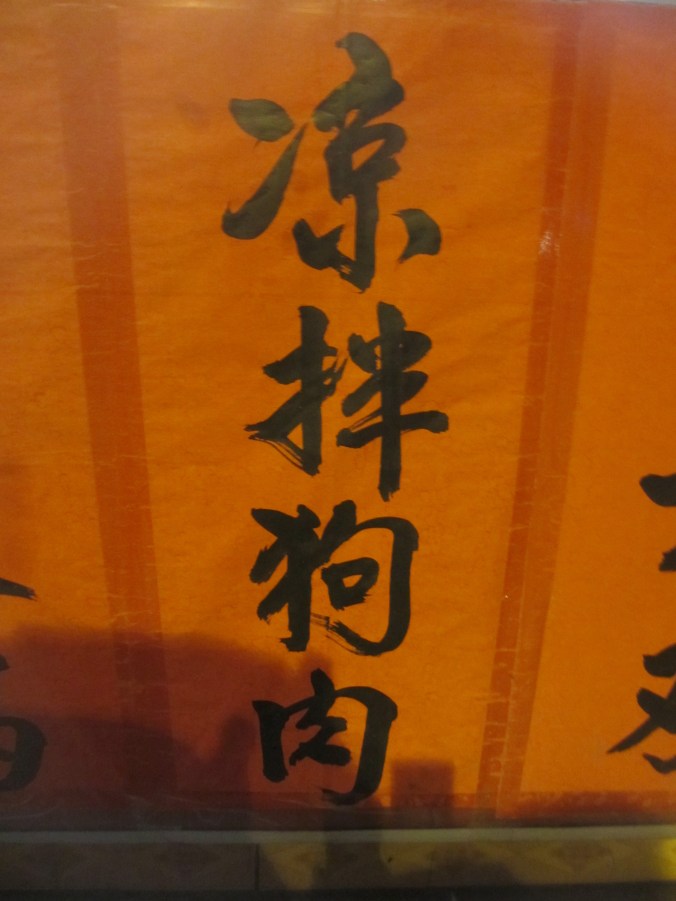 凉拌狗肉